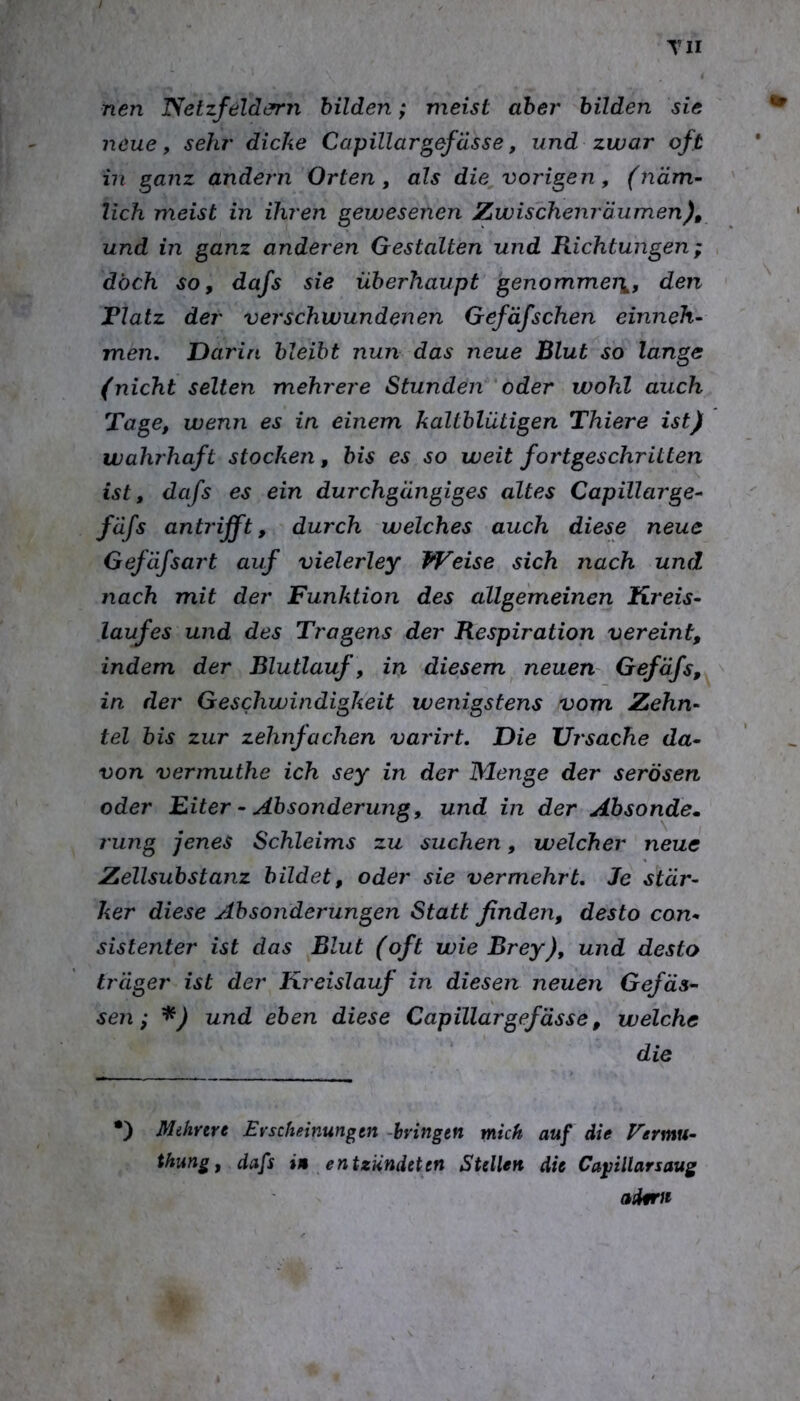 VII
nen Netzfeldern bilden; meist aber bilden sie
neue, sehr dicke Capillargefässe, und zwar oft
in ganz andern Orten, als die vorigen, (näm-
lich meist in ihren gewesenen Zwischenräumen),
und in ganz anderen Gestalten und Richtungen;
doch so, dafs sie überhaupt genommen, den
Platz der verschwundenen Gefäfschen einneh-
men. Darin bleibt nun das neue Blut so lange
(nicht selten mehrere Stunden oder wohl auch
Tage, wenn es in einem kaltblütigen Thiere ist)
wahrhaft stocken, bis es so weit fortgeschritten
ist, dafs es ein durchgängiges altes Capillarge-
fäfs antrifft, durch welches auch diese neue
Gefäfsart auf vielerley Weise sich nach und
nach mit der Funktion des allgemeinen Kreis-
laufes und des Tragens der Respiration vereint,
indem der Blutlauf, in diesem neuen Gefäfs,
in der Geschwindigkeit wenigstens vom Zehn-
tel bis zur zehnfachen varirt. Die Ursache da-
von vermuthe ich sey in der Menge der serösen
oder Eiter-Absonderung, und in der Absonde-
rung jenes Schleims zu suchen, welcher neue
Zellsubstanz bildet, oder sie vermehrt. Je stär-
ker diese Absonderungen Statt finden, desto con-
sistenter ist das Blut (oft wie Brey), und desto
träger ist der Kreislauf in diesen neuen Gefäs-
sen; *) und eben diese Capillargefässe, welche
die
*) Mehrere Erscheinungen bringen mich auf die Vermu-
thung, dafs in entzündeten Stellen die Capillarsaug
adern